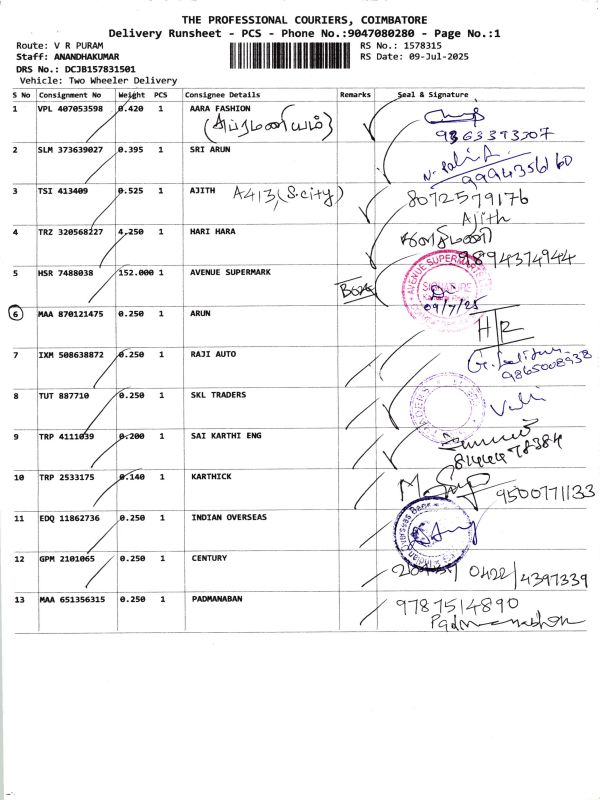 THE PROFESSIONAL COURIERS, COIMBATORE
Delivery Runsheet - PCS - Phone No.:9047080280 - Page No.:1
Route: V R PURAM RS No.: 1578315
Staff: ANANDHAKUMAR RS Date: 09-Jul-2025
DRS No.: DCJB157831501
Vehicle: Two Wheeler Delivery
S No Consignment No Weight PCS Consignee Details Remarks Seal & Signature
1 VPL 407053598 0.420 1 AARA FASHION
(சுப்ரமணியம்)
9363393307
2 SLM 373639027 0.395 1 SRI ARUN
9994356160
3 TSI 413409 0.525 1 AJITH A413, (S.city) 8072579176
Ajith
4 TRZ 320568227 4.250 1 HARI HARA
9894374944
5 HSR 7488038 152.000 1 AVENUE SUPERMARK
AVENUE SUPERMAR
SIGNATURE
Box
09/7/25
6 MAA 870121475 0.250 1 ARUN H/R
7 IXM 508638872 0.250 1 RAJI AUTO
9865008938
8 TUT 887710 0.250 1 SKL TRADERS
9 TRP 4111039 0.200 1 SAI KARTHI ENG
8444478384
10 TRP 2533175 0.140 1 KARTHICK
9500771133
11 EDQ 11862736 0.250 1 INDIAN OVERSEAS
Indian Overseas Bank
12 GPM 2101065 0.250 1 CENTURY 0422/4397339
13 MAA 651356315 0.250 1 PADMANABAN 9787514890
Padmanabhan